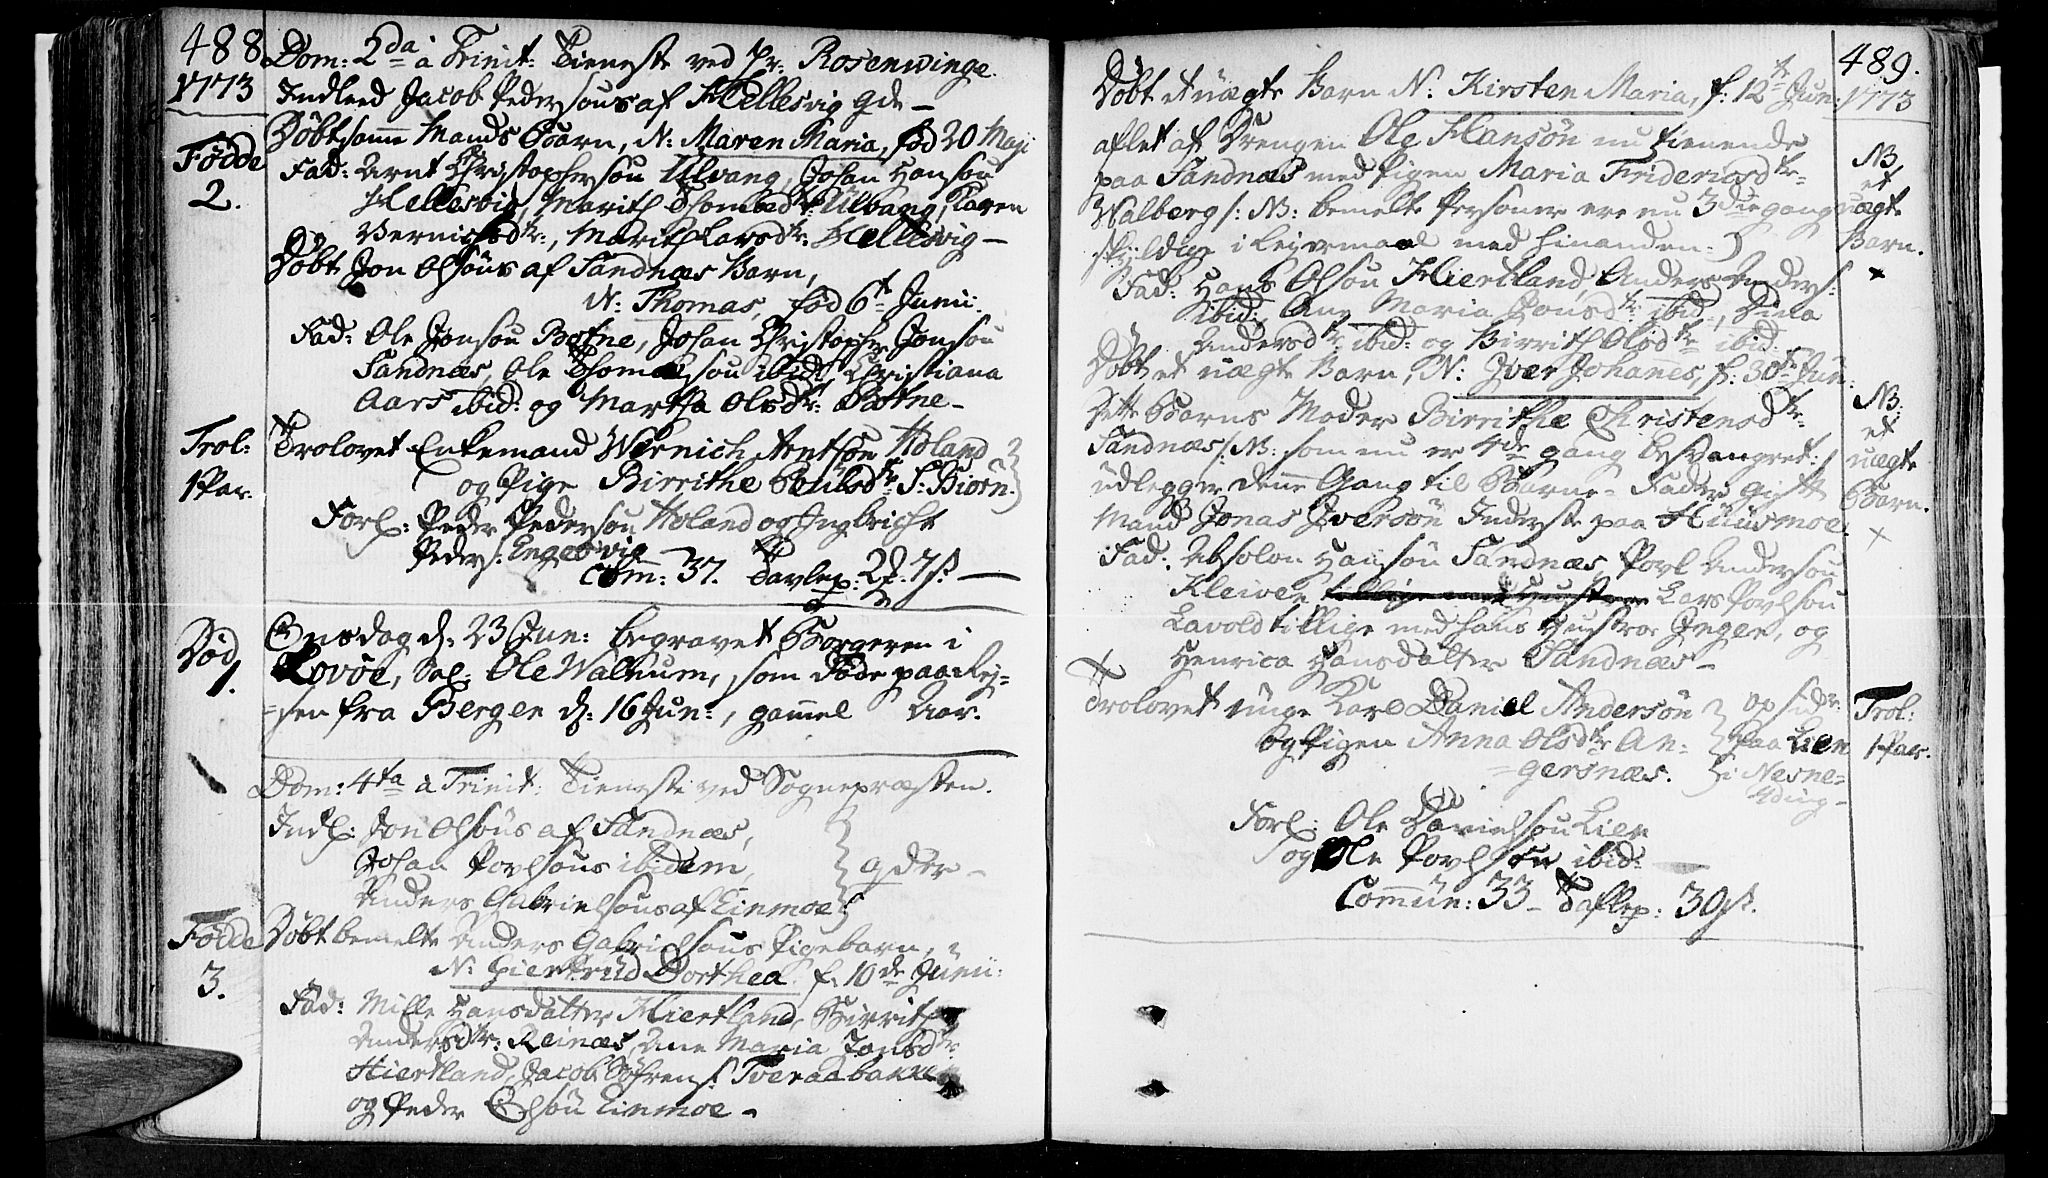 488
1773
Dom: 2da à Trinit: Tieneste ved Hr: Rosenwinge.
Indleed Jacob Pedersöns af Hellesvig Qde –
Fødde
2.
Døbt samme Mands Barn, N: Maren Maria, fød 20 Maji
Fad: Arnt Christophersøn Ulvang, Johan Hansøn
Hellesvig, Marith Thomædtr Ulvang, Karen
Vernichsdtr:, Marith Larsdtr: Hellesvig –
Døbt Jon Olsöns af Sandnæs Barn,
N: Thomas, fød 6te Junii:
Fad: Ole Jonsøn Botne, Johan Christopher Jonsøn
Sandnæs, Ole Thomæsøn ibid: Christiana
Aars ibid: og Martha Olsdtr: Botne –
Trol:
1 Par.
Trolovet Enkemand Wernich Arntsøn Holand
og Pige Birrithe Poulsdtr S: Biørn.
Forl: Peder Pedersøn Holand og Ingbricht
Peders: Engesvig
Com: 37. Tavlep: 2 7 s. –
Død
1.
Onsdag d: 23 Jun: begravet Borgeren i
Lovøe, Sal: Ole Walnum, som døde paa Rej=
=sen fra Bergen d: 16 Jun:, gammel Aar.
Dom: 4ta à Trinit: Tieneste ved Sognepræsten.
Indl: Jon Olsöns af Sandnæs,
Johan Povlsöns ibidem,
Anders Gabrielsöns af Einmoe
Qder –
Fødde
3.
Døbt bemelte Anders Gabrielsöns Pigebarn,
N: Giertrud Dorthea f. 10de Junii:
Fad: Mille Hansdatter Hiertland, Birrith
Andersdtr: Reinæs, Ane Maria Jonsdtr:
Hiertland, Jacob Søfrens: Tveraabakke
og Peder Olsön Einmoe –
489.
1773
Døbt et uægte Barn N: Kirsten Maria, f: 12te Jun:
aflet af Drengen Ole Hansøn nu tienende
paa Sandnæs med Pigen Maria Friderichsdtr
Walberg /: NB: bemelte Personer ere nu 3die gang
skyldige i Lejermaal med hinanden :)
NB
et
uægte
Barn.
Fad: Hans Olsøn Hiertland, Anders Anders:
ibid:, Ane Maria Jonsdtr: ibid:, Dina
Andersdtr ibid: og Birrith Olsdtr ibid.
Døbt et uægte Barn, N: Iver Johanes, f: 30te Jun:
dette Barns Moder Birrithe Christensdtr
Sandnæs /: NB: som nu er 4de gang besvangret :/
udlegger denne Gang til Barne-Fader gift
Mand Jonas Iversøn Inderste paa Huusmoe.
NB.
et
uægte
Barn.
Fad: Absolon Hansøn Sandnæs, Povl Andersøn
Kleiven Lars Povlsøn
Lavold tillige med hans Hustroe Inger, og
Henrica Hansdatter Sandnæs –
Trolovet unge Karl Daniel Andersøn
og Pigen Anna Olsdtr An=
=gersnæs.
opsidr:
paa Lien
i Nesne=
4ding –
Trol:
1 Par.
Forl: Ole Danielsøn Lien
og Ole Povlsøn ibid:
Commun: 33 – Taflep: 30 s.